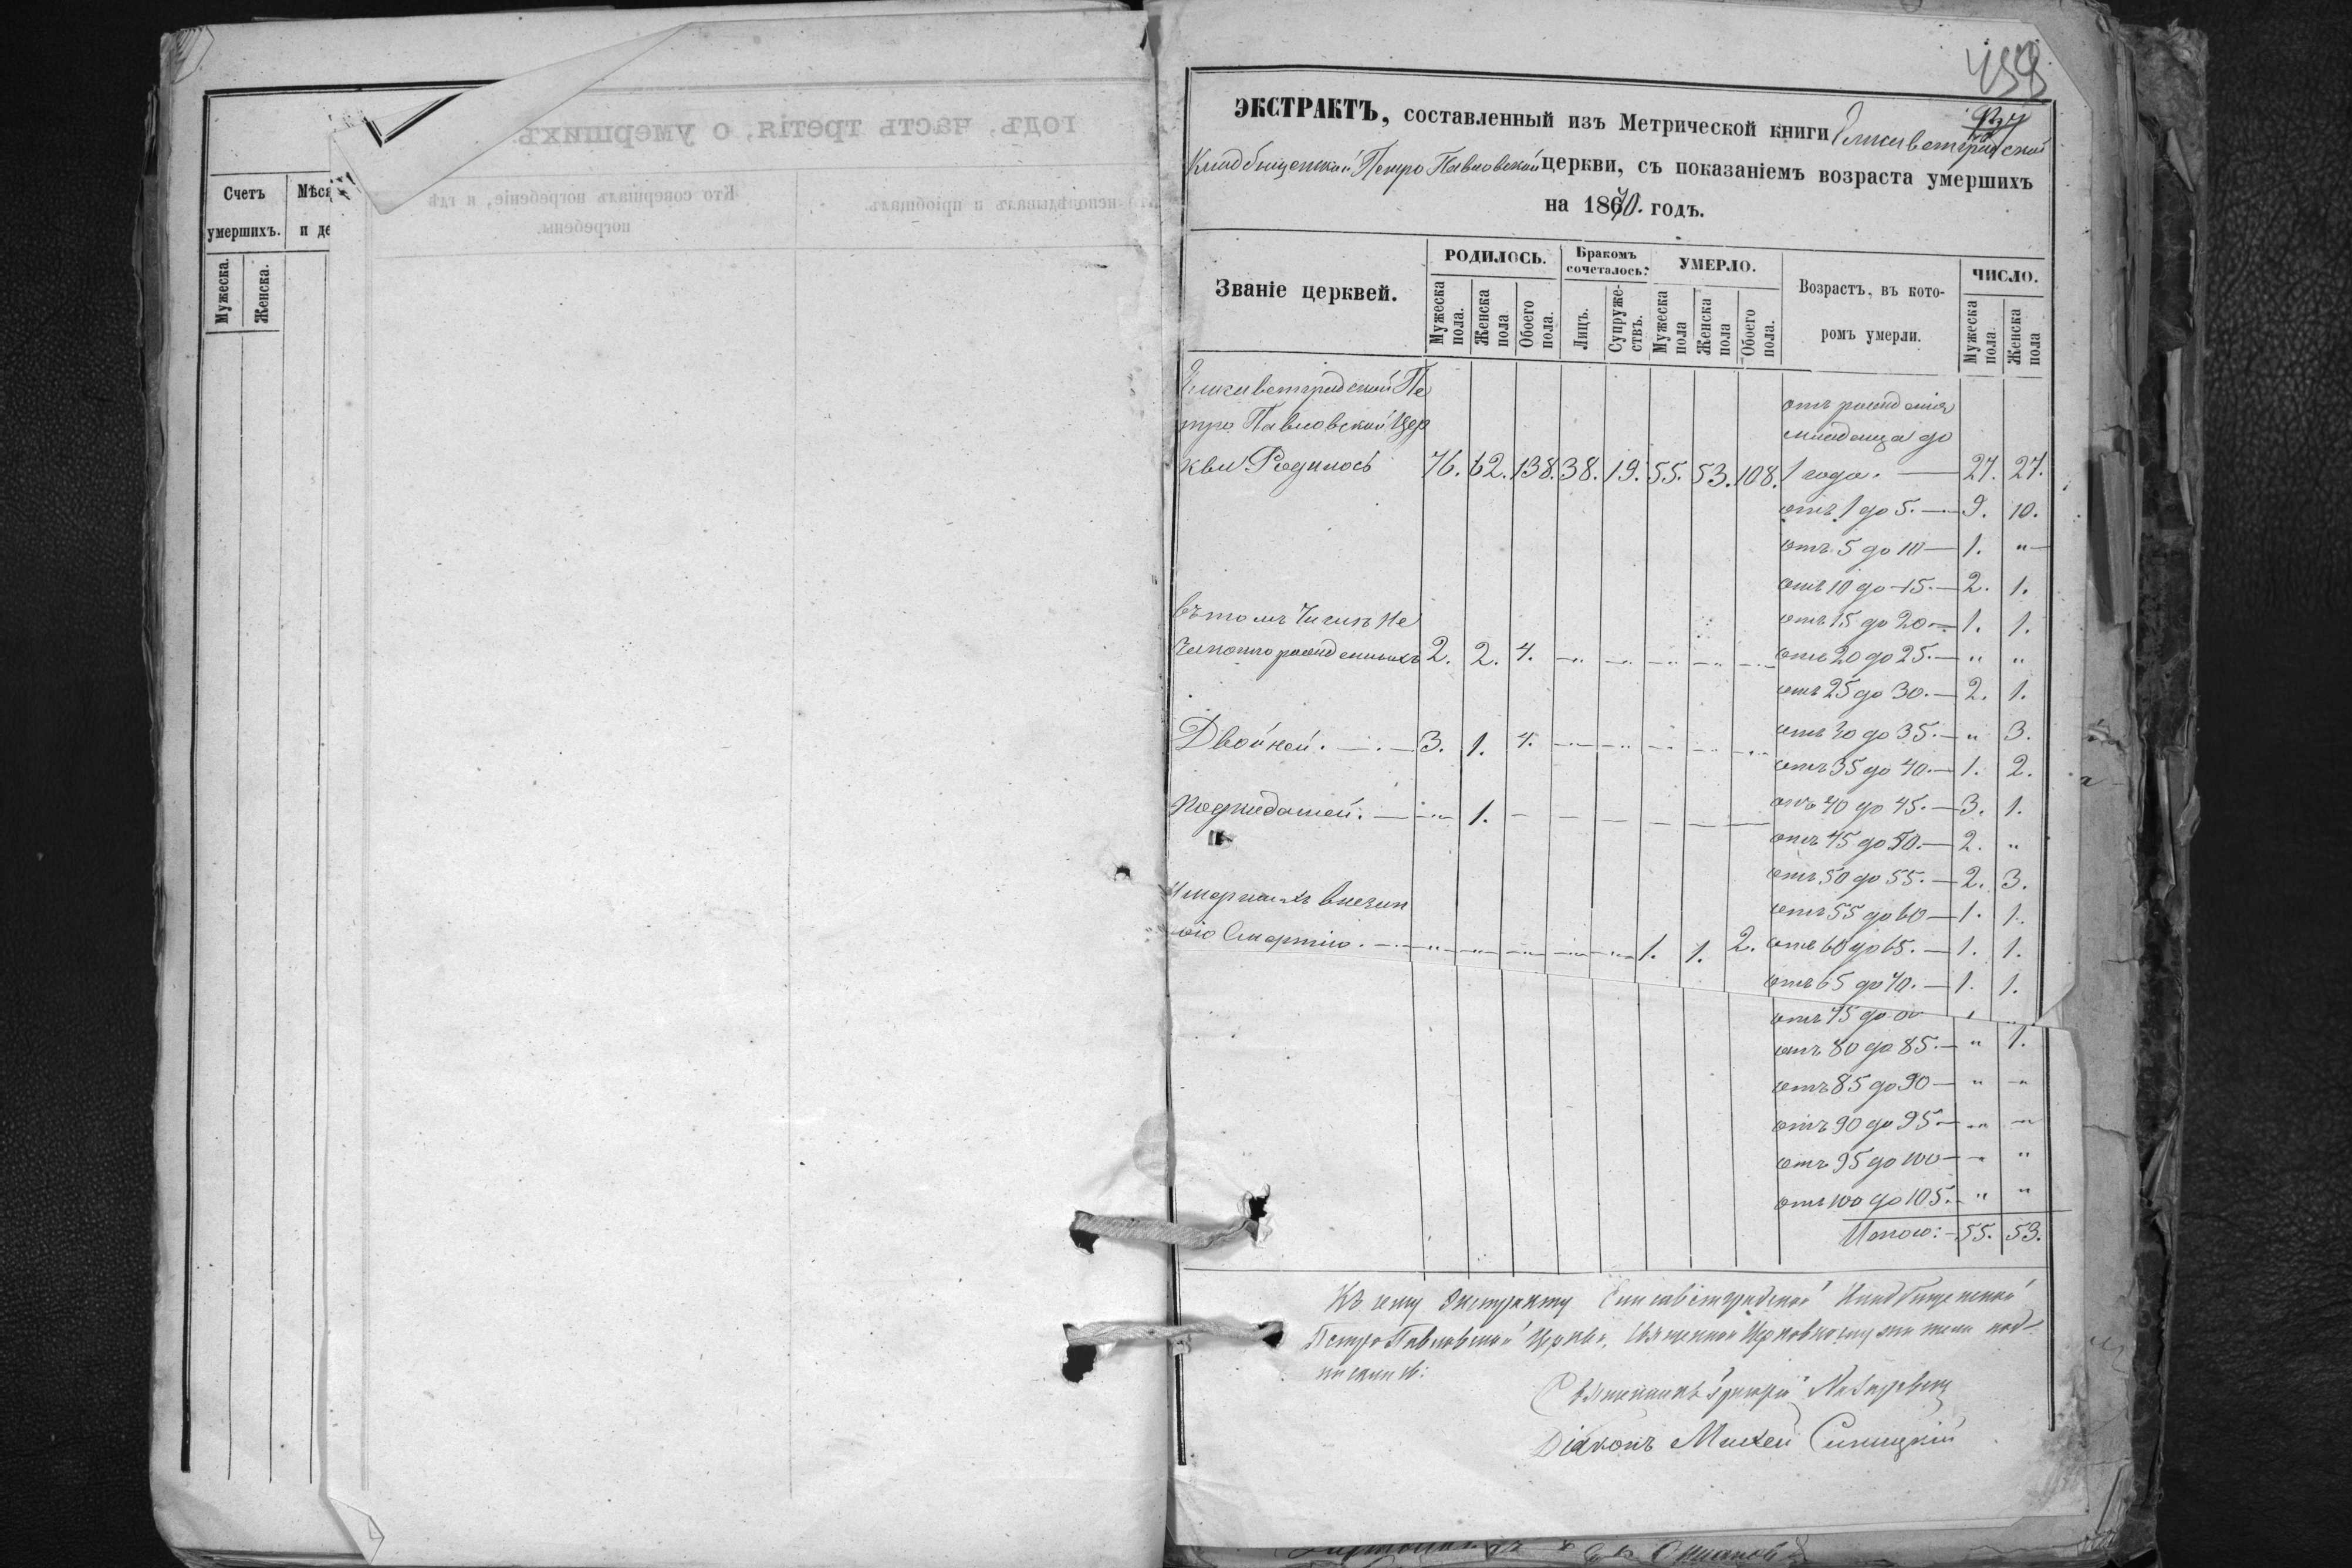 годъ, часть третія, о умершихъ.
Счетъ
умершихъ.
Мужеска.
Женска.
Мѣся
и де
исповѣдывалъ и пріобщалъ.
Кто совершалъ погребеніе, и гдѣ
погребены.
459
ЭКСТРАКТЪ, составленный изъ Метрической книги Елисаветградской
Кладбищенской Петро Павловской церкви, съ показаніемъ возраста умершихъ
на 1870. годъ.
Званіе церквей.
РОДИЛОСЬ.
Мужеска пола.
Женска пола
Обоего пола.
Бракомъ сочеталось:
Лицъ.
Супруже-ствъ.
УМЕРЛО.
Мужеска пола
Женска пола
Обоего пола.
Возрастъ, въ кото-
ромъ умерли.
ЧИСЛО.
Мужеска пола.
Женска пола
Елисаветградской Пе
тро Павловской Цер
кви Родилось 76. 62. 138. 38. 19. 55. 53. 108.
отъ рожденія
младенца до
1 года. — 27. 27.
отъ 1 до 5. — 9. 10.
отъ 5 до 10 — 1. "
отъ 10 до 15. — 2. 1.
отъ 15 до 20 — 1. 1.
отъ 20 до 25. — " "
отъ 25 до 30. — 2. 1.
отъ 30 до 35. — " 3.
отъ 35 до 40. — 1. 2.
отъ 40 до 45. — 3. 1.
отъ 45 до 50. — 2. "
отъ 50 до 55. — 2. 3.
отъ 55 до 60 — 1. 1.
отъ 60 до 65. — 1. 1.
отъ 65 до 70. — 1. 1.
отъ 75 до
отъ 80 до 85. — " 1.
отъ 85 до 90 — " "
отъ 90 до 95 — " "
отъ 95 до 100 — " "
отъ 100 до 105. " "
Итого: 55. 53.
въ томъ Числѣ Не
законно рожденныхъ 2. 2. 4.
Двойней. — 3. 1. 4.
Подкидышей. — " 1.
Умершихъ внезап
ною Смертію. — 1. 1. 2.
Къ сему Экстракту Елисаветградской Кладбищенской
Петро Павловской Церкви, Священно Церковнослужители под-
писались:
Священникъ Григорій
Діаконъ Михей Синицкій